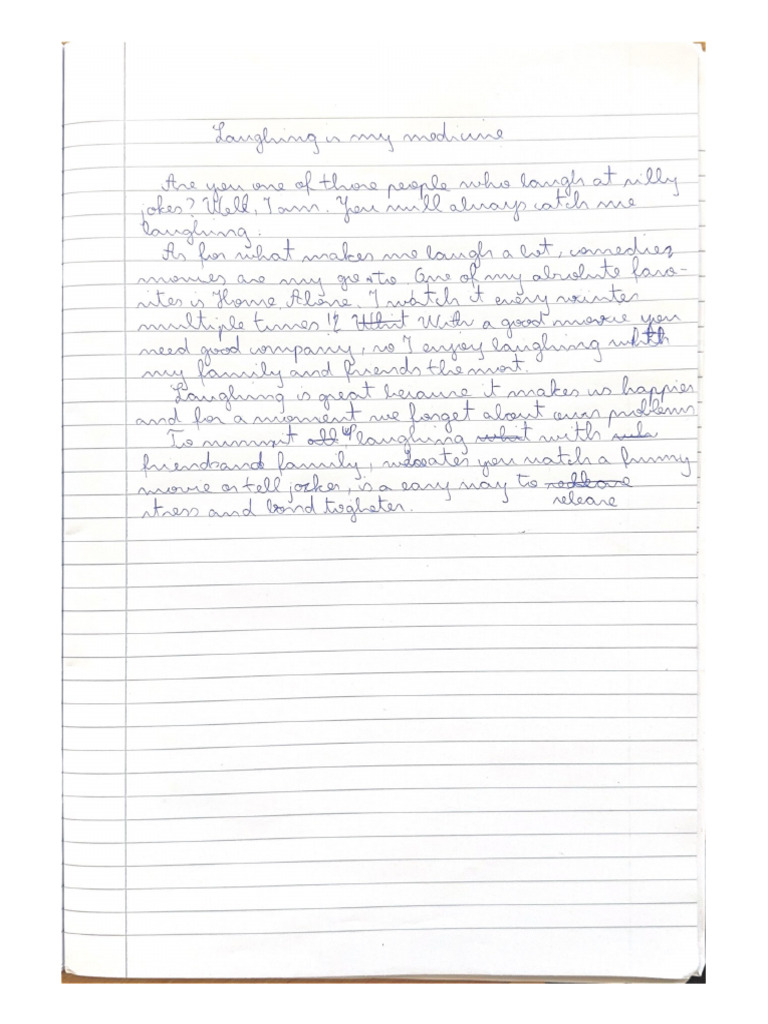 Laughing is my medicine
Are you one of those people who laugh at silly
jokes? Well, I am. You will always catch me
laughing.
As for what makes me laugh a lot, comedies
movies are my go to. One of my absolute favo-
rites is Home Alone. I watch it every winter
multiple times!? With a good movie you
need good company, so I enjoy laughing with
my family and friends the most.
Laughing is great because it makes us happier
and for a moment we forget about ours problems
To summ it up laughing with
friends and family, you watch a funny
movie or tell jockes, is a easy way to
release
stress and bond togheter.